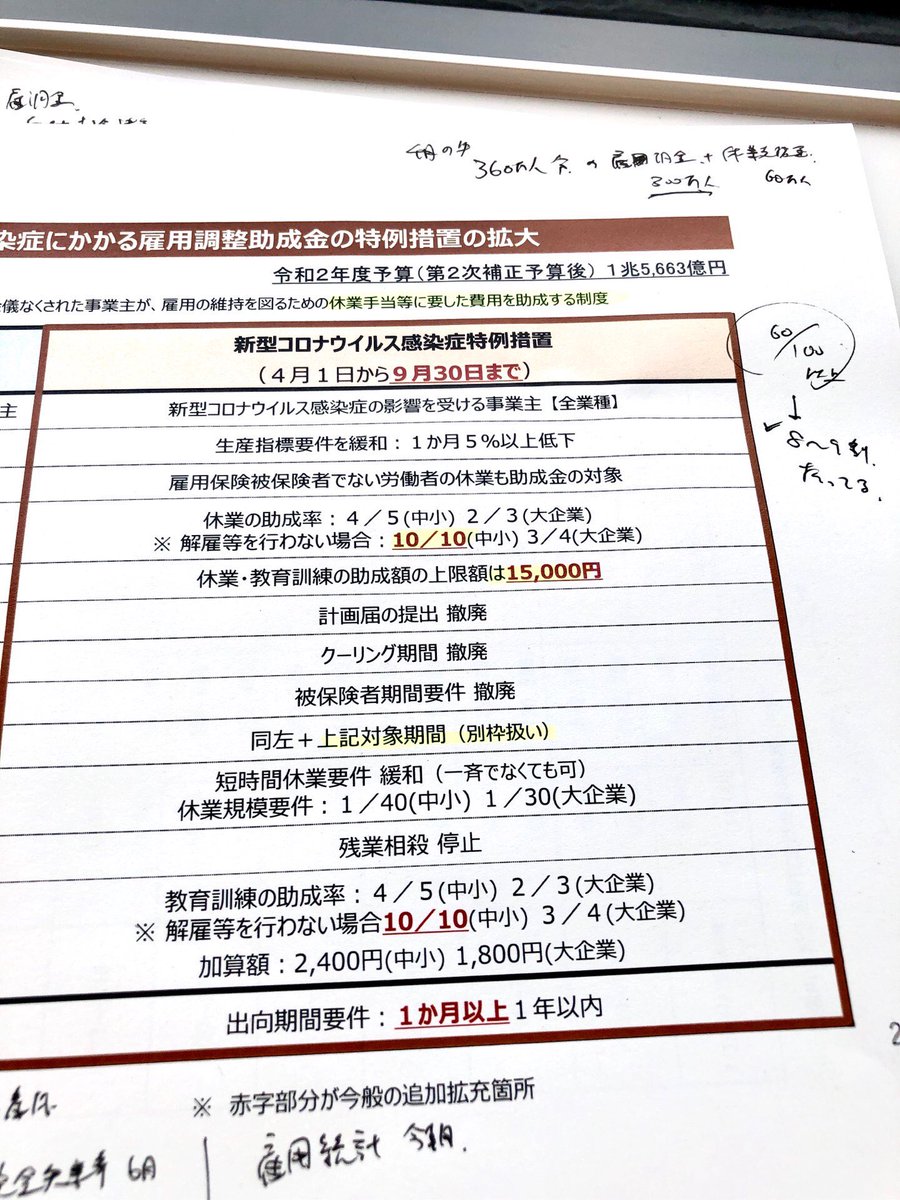 雇調金
360万人分の雇用調金+休業支援金
300万人 60万人
染症にかかる雇用調整助成金の特例措置の拡大
令和2年度予算(第2次補正予算後) 1兆5,663億円
儀なくされた事業主が、雇用の維持を図るための休業手当等に要した費用を助成する制度
新型コロナウイルス感染症特例措置
(4月1日から9月30日まで)
60/100
以上
↓
8~9割
主
新型コロナウイルス感染症の影響を受ける事業主【全業種】
生産指標要件を緩和:1か月5%以上低下
雇用保険被保険者でない労働者の休業も助成金の対象
休業の助成率:4/5(中小) 2/3(大企業)
※ 解雇等を行わない場合:10/10(中小) 3/4(大企業)
休業・教育訓練の助成額の上限額は15,000円
計画届の提出 撤廃
クーリング期間 撤廃
被保険者期間要件 撤廃
同左+上記対象期間(別枠扱い)
短時間休業要件 緩和(一斉でなくても可)
休業規模要件:1/40(中小) 1/30(大企業)
残業相殺 停止
教育訓練の助成率:4/5(中小) 2/3(大企業)
※ 解雇等を行わない場合10/10(中小) 3/4(大企業)
加算額:2,400円(中小) 1,800円(大企業)
出向期間要件:1か月以上1年以内
2
※ 赤字部分が今般の追加拡充箇所
完全失業率 6月
雇用統計 今朝